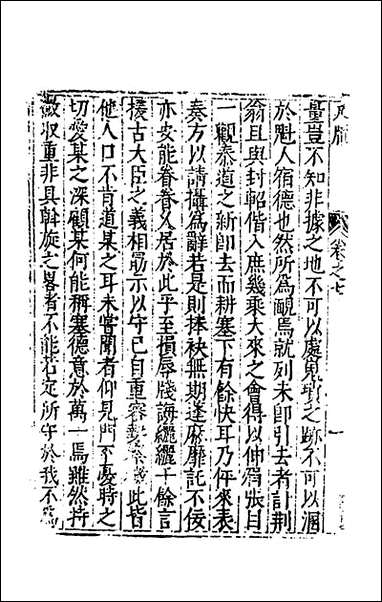 尺牘 卷之七 一
量豈不知非據之地不可以處見賢之跡不可以溷
於魁人宿德也然所為覥焉就列未即引去者計荆
翁且與封軺偕入庶幾乘大來之會得以伸眉張目
一觀泰道之新即去而耕塞下有餘快耳乃伻來表
奏方以請攝為辭若是則捧袂無期蓬麻靡託不佞
亦安能眷眷久居於此乎至損辱牋誨纚纚千餘言
援古大臣之義相勗示以守己自重容 此皆
他人口不肯道某之耳未嘗聞者仰見門下憂時之
切愛某之深顧某何能稱塞德意於萬一焉雖然持
收重非具斡旋之畧者不能若定所守於我不為